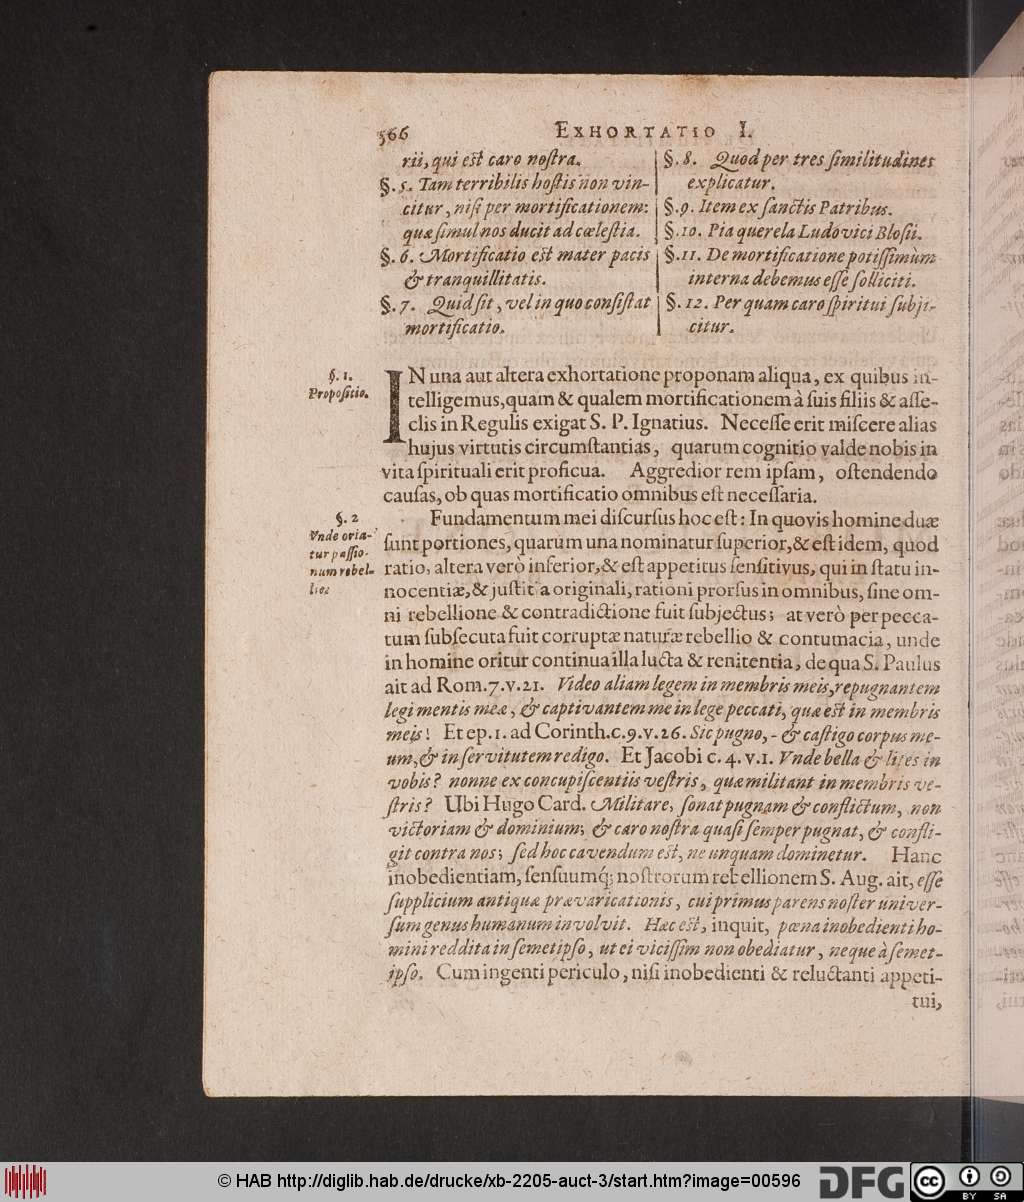 566
EXHORTATIO I.
rii, qui est caro noſtra.
§. 5. Tam terribilis hoſtis non vin-
citur, niſi per mortificationem:
quæ ſimul nos ducit ad cœleſtia.
§. 6. Mortificatio est mater pacis
& tranquillitatis.
§. 7. Quid ſit, vel in quo conſiſtat
mortificatio.
§. 8. Quod per tres ſimilitudines
explicatur.
§. 9. Item ex ſanctis Patribus.
§. 10. Pia querela Ludovici Bloſii.
§. 11. De mortificatione potiſſimùm
interna debemus eſſe ſolliciti.
§. 12. Per quam caro ſpiritui ſubji-
citur.
§. 1.
Propoſitio.
IN una aut altera exhortatione proponam aliqua, ex quibus in-
telligemus, quam & qualem mortificationem à ſuis filiis & aſſe-
clis in Regulis exigat S. P. Ignatius. Neceſſe erit miſcere alias
hujus virtutis circumſtantias, quarum cognitio valde nobis in
vita ſpirituali erit proficua. Aggredior rem ipſam, oſtendendo
cauſas, ob quas mortificatio omnibus eſt neceſſaria.
§. 2
Vnde oria-
tur paſſio-
num rebel-
lio?
Fundamentum mei diſcurſus hoc eſt: In quovis homine duæ
ſunt portiones, quarum una nominatur ſuperior, & eſt idem, quod
ratio, altera verò inferior, & eſt appetitus ſenſitivus, qui in ſtatu in-
nocentiæ, & juſtitia originali, rationi prorſus in omnibus, ſine om-
ni rebellione & contradictione fuit ſubjectus; at verò per pecca-
tum ſubſecuta fuit corruptæ naturæ rebellio & contumacia, unde
in homine oritur continua illa lucta & renitentia, de qua S. Paulus
ait ad Rom. 7. v. 21. Video aliam legem in membris meis, repugnantem
legi mentis meæ, & captivantem me in lege peccati, quæ est in membris
meis! Et ep. 1. ad Corinth. c. 9. v. 26. Sic pugno, - & caſtigo corpus me-
um, & in ſervitutem redigo. Et Jacobi c. 4. v. 1. Vnde bella & lites in
vobis? nonne ex concupiſcentiis veſtris, quæ militant in membris ve-
ſtris? Ubi Hugo Card. Militare, ſonat pugnam & conflictum, non
victoriam & dominium; & caro noſtra quaſi ſemper pugnat, & confli-
git contra nos; ſed hoc cavendum est, ne unquam dominetur. Hanc
inobedientiam, ſenſuumq́; noſtrorum rebellionem S. Aug. ait, eſſe
ſupplicium antiquæ prævaricationis, cui primus parens noſter univer-
ſum genus humanum involvit. Hæc est, inquit, pœna inobedienti ho-
mini reddita in ſemetipſo, ut ei viciſſim non obediatur, neque à ſemet-
ipſo. Cum ingenti periculo, niſi inobedienti & reluctanti appeti-
tui,
© HAB http://diglib.hab.de/drucke/xb-2205-auct-3/start.htm?image=00596
DFG
cc BY SA